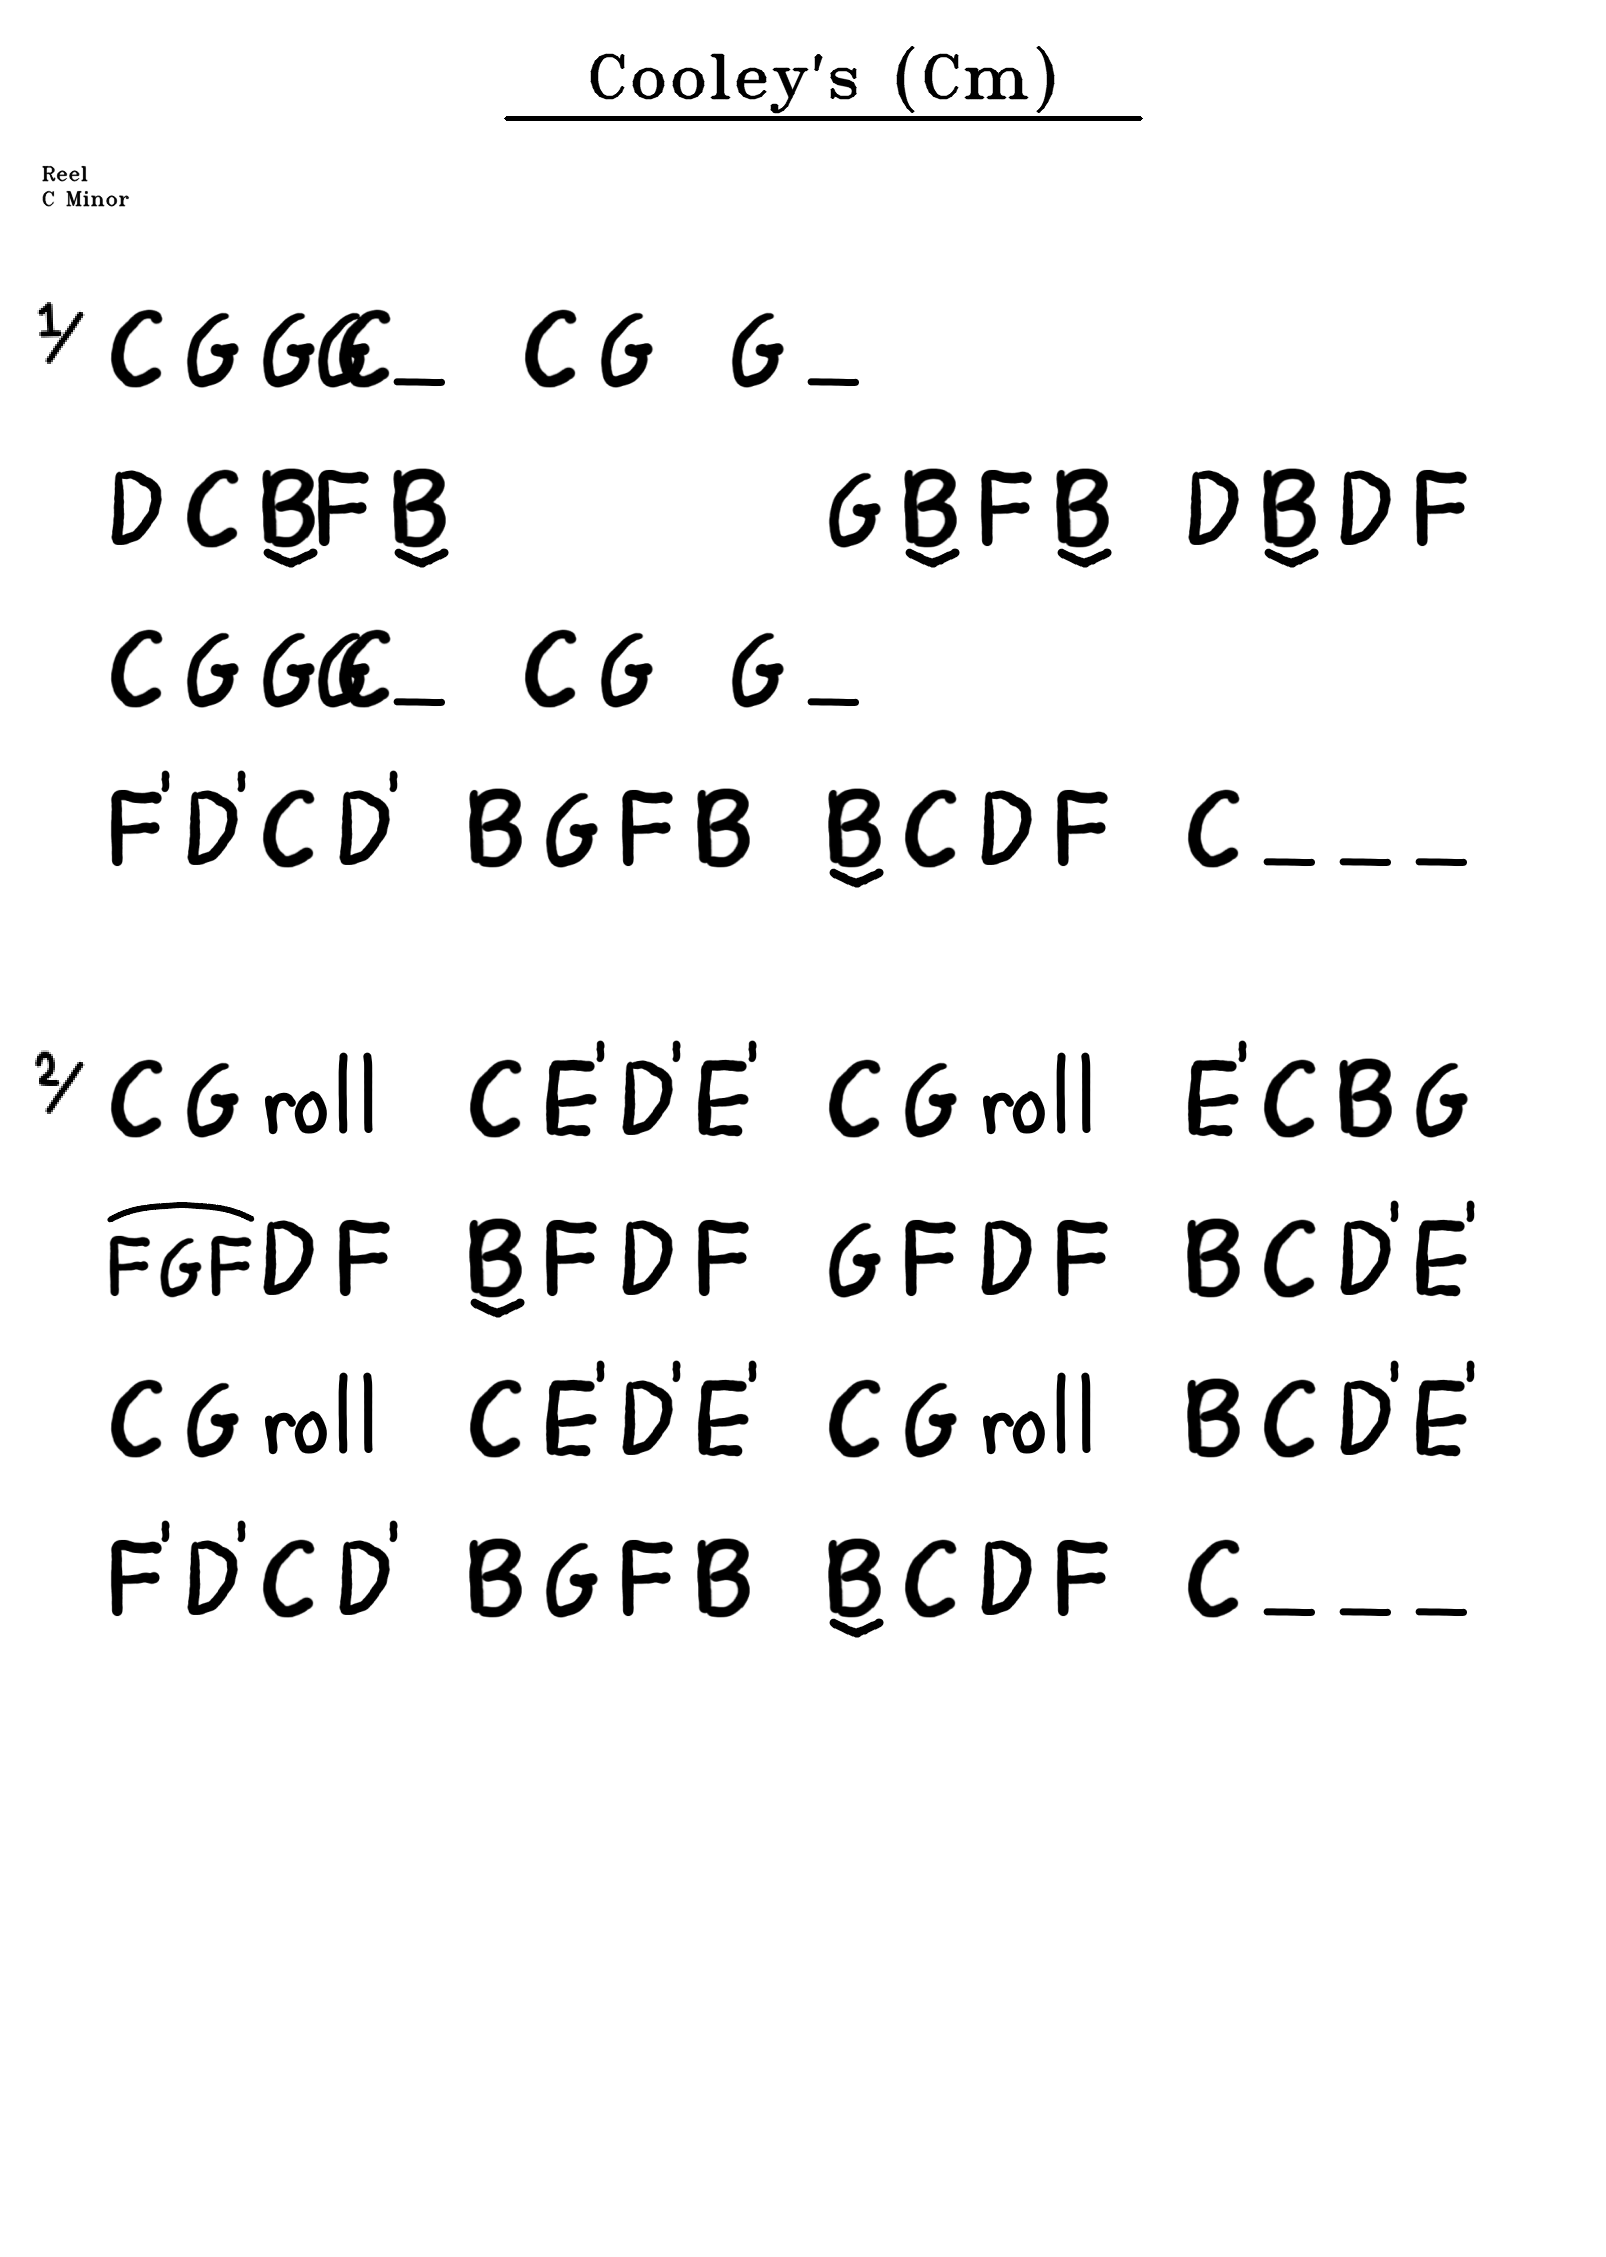 Cooley's (Cm)
Reel
C Minor
1/ C G G G C _ C G G _
D C B F B G B F B D B D F
C G G G C _ C G G _
F' D' C D' B G F B B C D F C _ _ _
2/ C G roll C E' D' E' C G roll E' C B G
F G F D F B F D F G F D F B C D' E'
C G roll C E' D' E' C G roll B C D' E'
F' D' C D' B G F B B C D F C _ _ _